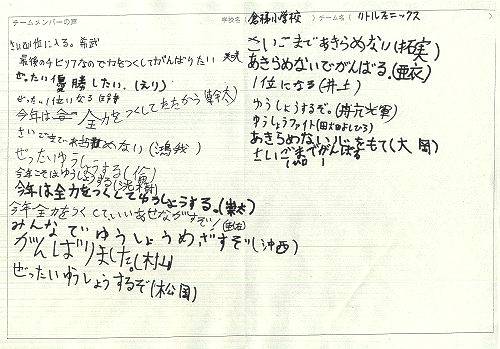 チームメンバーの声
学校名（倉梯小学校　）チーム名（リトルフェニックス
さい四位に入る。希武
最後のチビリンピックなので力をつくしてがんばりたい
ぜったい優勝したい。(えり)
ぜったい1位になる
今年は全力をつくしてたたかう(幹太)
さいごまで諦めない(鴻我)
ぜったいゆうしょうする(倫)
今年こそはゆうしょうする
今年は全力をつくしてゆうしょうする。(崇太)
今年全力をつくしていいあせながすぞ!
みんなでゆうしょうめざすぞ(沖西)
がんばりました。(村山
ぜったいゆうしょうするぞ(松岡)
さいごまであきらめない(拓実)
あきらめないでがんばる。(亜衣)
1位になる(井上)
ゆうしょうするぞ。
ゆうしょうファイト
あきらめない心をもて(大岡)
さいごまでがんばる